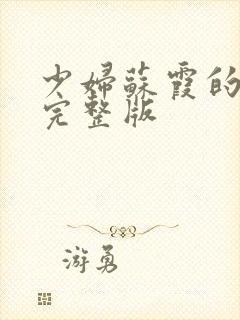 少婦蘇霞的
完整版
游勇